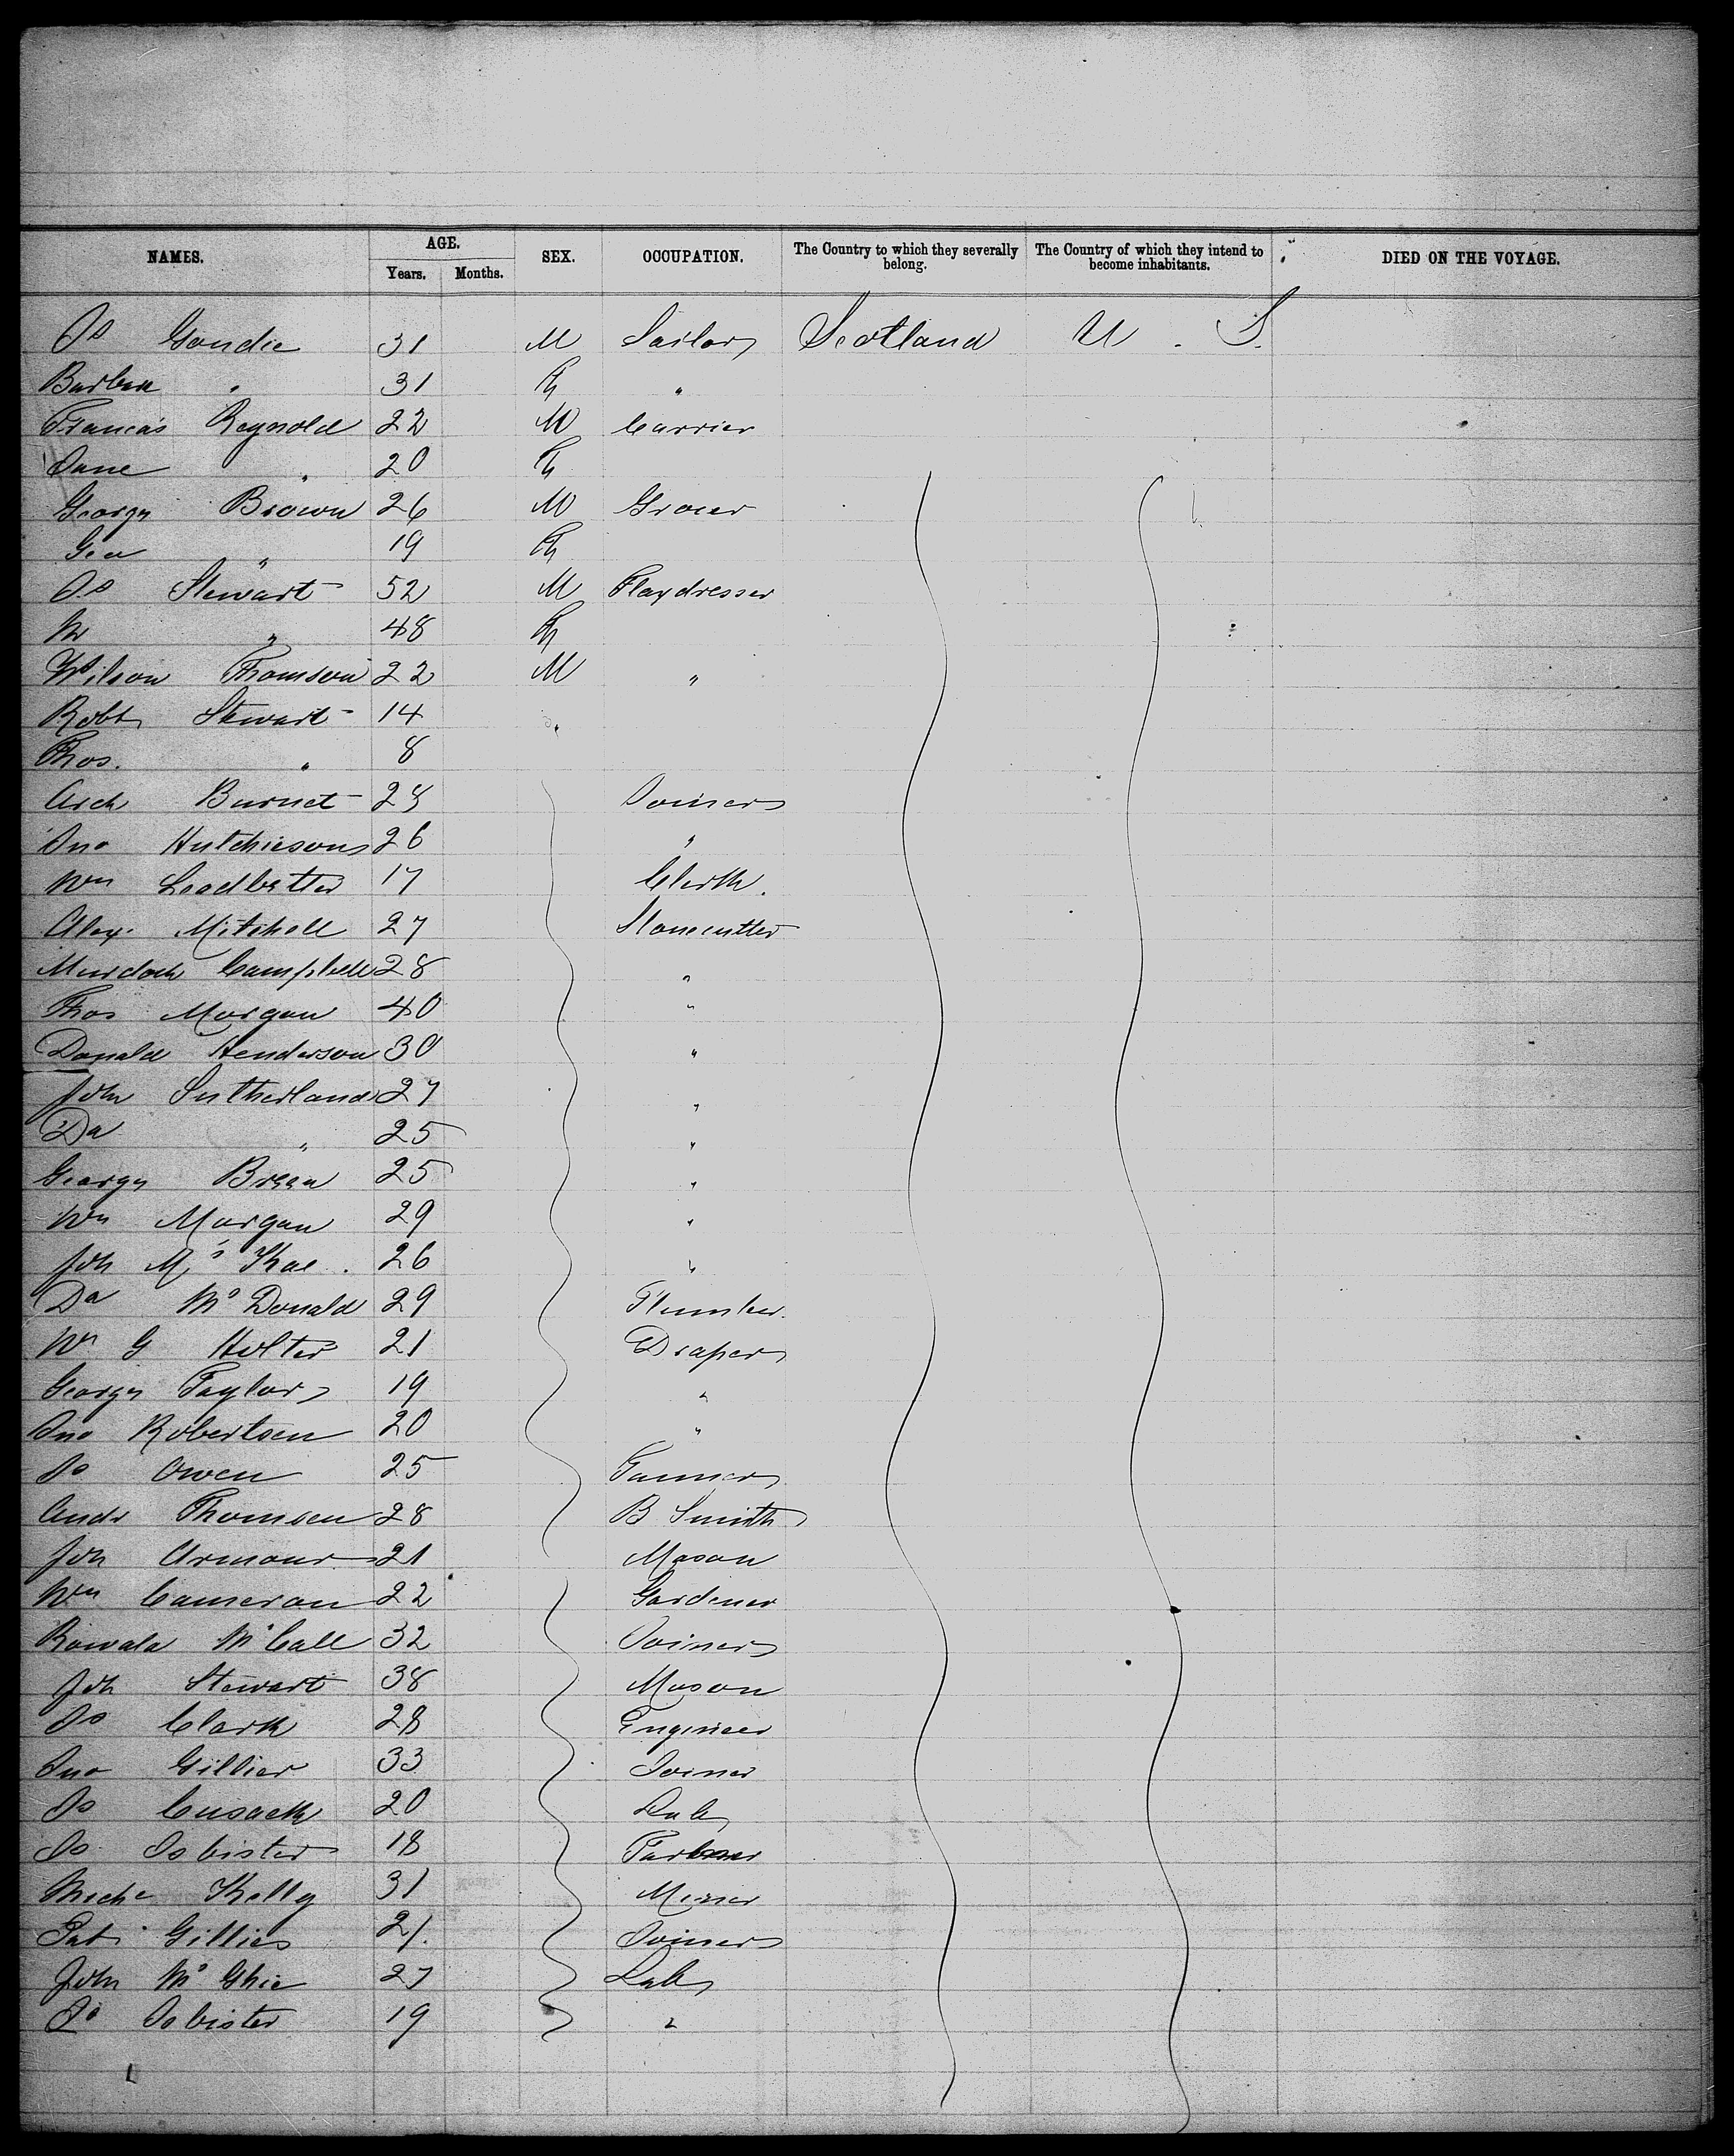 NAMES. AGE. SEX. OCCUPATION. The Country to which they severally belong. The Country of which they intend to become inhabitants. DIED ON THE VOYAGE.
Years. Months.
Js Goudie 31 M Sailor Scotland U. S.
Barbara " 31 F "
Francis Reynold 22 M Carrier
Jane " 20 F
George Brown 26 M Grocer
Geo " 19 F
Js Stewart 52 M Flaxdresser
M " 48 F
Wilson Thomson 22 M "
Robt Stewart 14
Thos. " 8
Arch Burnet 28 Joiner
Jno Hutchieson 26 "
Wm Leadbetter 17 Clerk.
Alex. Mitchell 27 Stonecutter
Murdoch Campbell 28 "
Thos Morgan 40 "
Donald Henderson 30 "
John Sutherland 27 "
Da " 25 "
George 25 "
Wm Morgan 29 "
Joh Mc Kae. 26 "
Da Mc Donald 29 Plumber.
Wm G Holter 21 Draper
George Taylor 19 "
Jno Robertson 20 "
Js Owen 25
Andr Thomson 28 B Smith
Joh Armour 21 Mason
Wm Cameron 22 Gardener
Mc Call 32 Joiner
Joh Stewart 38 Mason
Js Clark 28 Engineer
Jno Gillier 33 Joiner
Js Cusack 20 Lab
Js Isbister 18
Miche Kelly 31 Miner
Pat. Gillies 21. Joiner
John Mc Ghie 27 Lab
Js Isbister 19 "